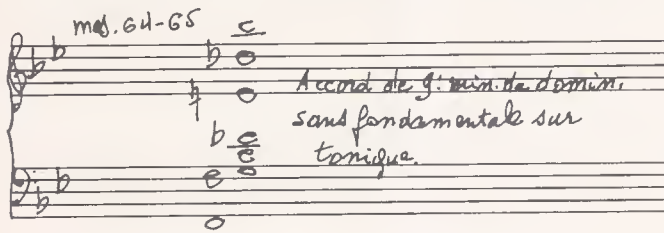 mes. 64-65
Accord de 9: min. de domin.
sans fondamentale sur
tonique.